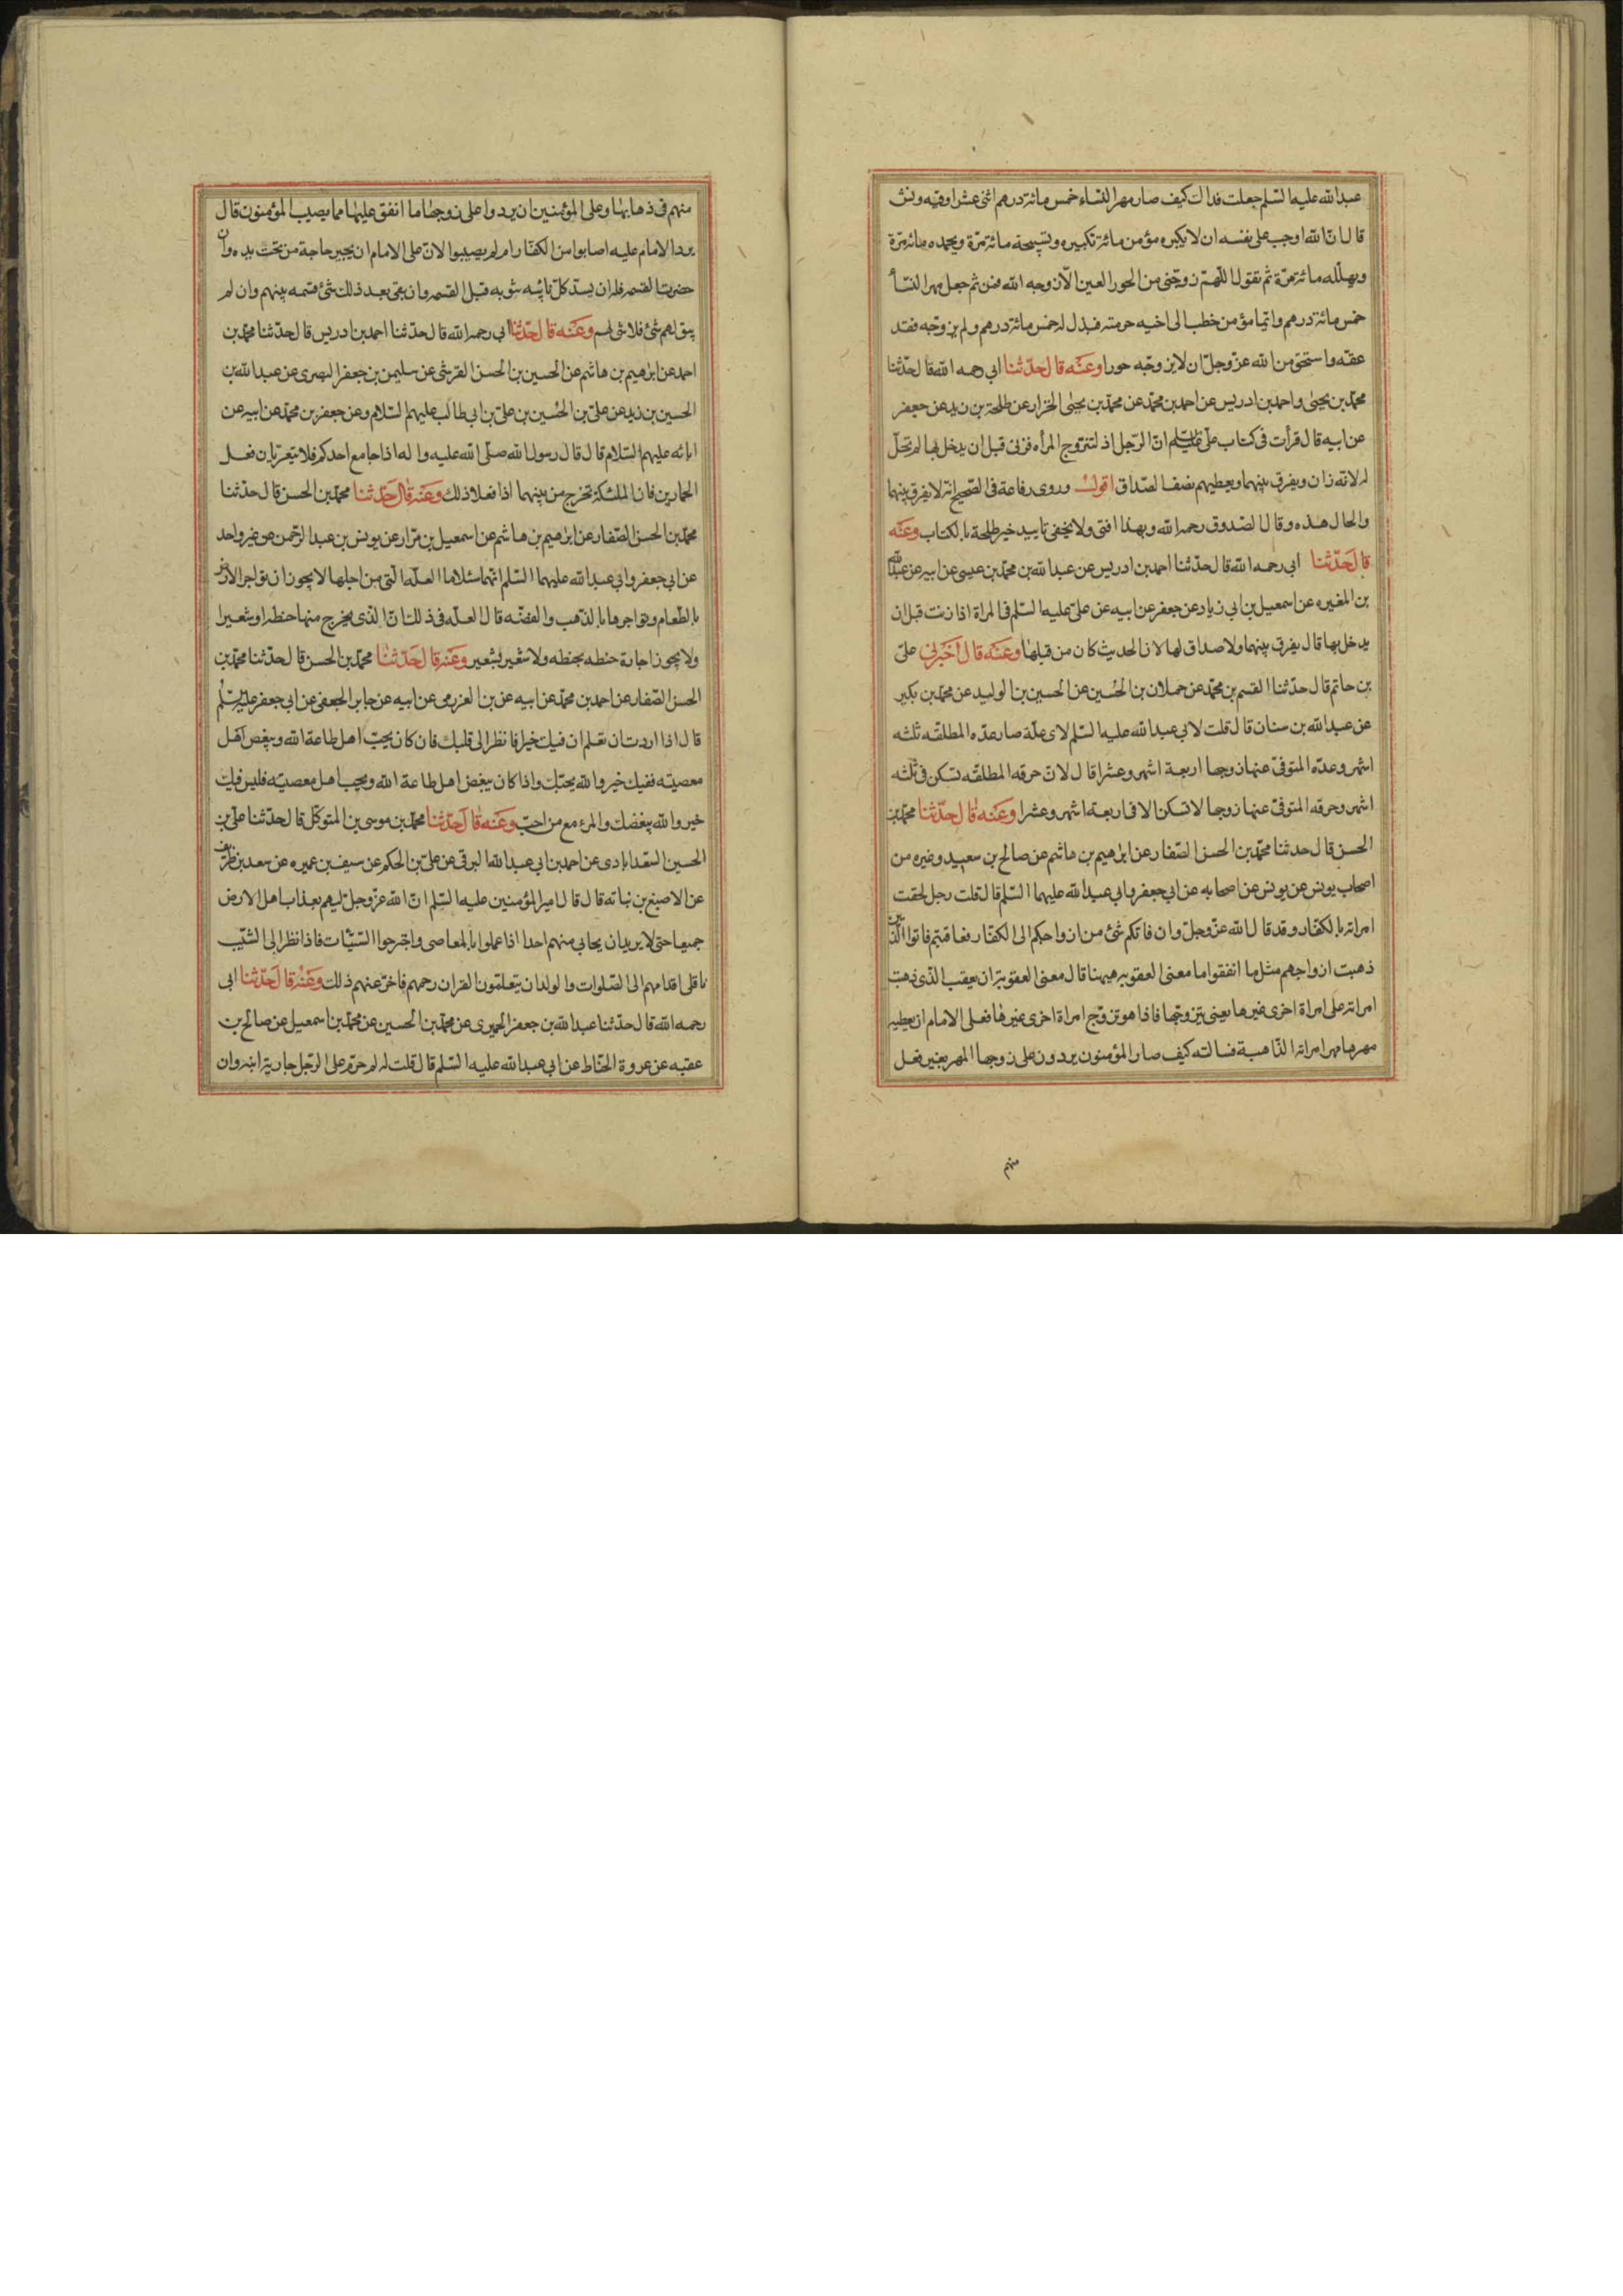 عبدالله عليه السّلم جعلت فداك كيف صار مهر النساء خمس مائة درهم اثنى عشر اوقيه ونش
قال انّ الله اوجب على نفسه ان لا يكبره مؤمن مائة تكبيره ويسبحه مائة مرّة ويحمده مائة مرّة
ويهلّله مائة مرّة ثم يقول اللّهمّ زوجنى من الحور العين الّا زوجه الله فمن ثم جعل مهر النسآ
خمس مائة درهم وايّما مؤمن خطب الى اخيه حرمته فبذل له خمس مائة درهم ولم يزوجه فقد
عقه واستحق من الله عزّوجلّ ان لا يزوجه حورا وعنه قال حدّثنا ابي رحمه الله قال حدّثنا
محمّد بن يحيى واحمد بن ادريس عن احمد بن محمّد عن محمّد بن يحيى الخزاز عن طلحة بن زيد عن جعفر
عن ابيه قال قرأت فى كتاب علىّ عليه السّلم انّ الرّجل اذا تزوج المرأه فزنى قبل ان يدخل بها لم تحلّ
له لانّه زان ويفرق بينهما ويعطيهم نصف الصّداق اقول وروى رفاعة فى الصّحيح انّه لا يفرق بينهما
والحال هذه وقال الصّدوق رحمه الله وبهذا افتى ولا يخفى تاييد خبر طلحة بالكتاب وعنه
قال حدّثنا ابى رحمه الله قال حدّثنا احمد بن ادريس عن عبدالله بن محمّد بن عيسى عن ابيه عن عبدالله
بن المغيره عن اسمعيل بن ابى زياد عن جعفر عن ابيه عن علىّ عليه السّلم فى المراة اذا زنت قبل ان
يدخل بها قال يفرق بينهما ولا صداق لها لان الحديث كان من قبلها وعنه قال اخبرنى علىّ
بن حاتم قال حدّثنا القسم بن محمّد عن حملان بن الحسين عن الحسين بن الوليد عن محمّد بن بكير
عن عبدالله بن سنان قال قلت لابى عبدالله عليه السّلم لاى علّة صار عدّه المطلقه ثلثه
اشهر وعدّه المتوفىّ عنها زوجها اربعة اشهر وعشرا قال لانّ حرقه المطلقه تسكن فى ثلثه
اشهر وحرقه المتوفىّ عنها زوجها لا تسكن الا فى اربعه اشهر وعشرا وعنه قال حدّثنا محمّد بن
الحسن قال حدثنا محمّد بن الحسن الصّفار عن ابرهيم بن هاشم عن صالح بن سعيد وغيره من
اصحاب يونس عن يونس عن اصحابه عن ابى جعفر وابى عبدالله عليهما السّلم قال قلت رجل لحقت
امراته بالكفّار وقد قال الله عزّوجلّ وان فاتكم شئ من ازواجكم الى الكفّار فعاقبتم فاتوا الّذين
ذهبت ازواجهم مثل ما انفقوا ما معنى العقوبه هيهنا قال معنى العقوبة ان يعقب الّذى ذهبت
امراته على امراة اخرى غيرها يعنى يتزوجها فاذا هو تزوّج امراة اخرى غيرها فعلى الامام ان يعطيه
مهرها مهر امراته الذّاهبة فسالته كيف صار المؤمنون يردون على زوجها المهر بغير فعل
منهم
منهم فى ذهابها وعلى المؤمنين ان يردوا على زوجها ما انفق عليها مما يصيب المؤمنون قال
يردّ الامام عليه اصابوا من الكفّار ام لم يصيبوا لانّ على الامام ان يجيز حاجة من تحت يده وان
حضرت القسمه فله ان يسدّ كلّ نائبه تنوبه قبل القسمه وان بقى بعد ذلك شئ قسمه بينهم وان لم
يبق لهم شئ فلا شئ لهم وعنه قال حدّثنا ابى رحمه الله قال حدّثنا احمد بن ادريس قال حدّثنا محمّد بن
احمد عن ابرهيم بن هاشم عن الحسين بن الحسن القرشى عن سليمن بن جعفر البصرى عن عبدالله بن
الحسين بن زيد عن علىّ بن الحسين بن علىّ بن ابى طالب عليهم السّلام وعن جعفر بن محمّد عن ابيه عن
ابائه عليهم السّلام قال قال رسول الله صلّى الله عليه واله اذا جامع احدكم فلا يتعرّيان فعل
الحمارين فان الملئكة تخرج من بينهما اذا فعلا ذلك وعنه قال حدّثنا محمّد بن الحسن قال حدّثنا
محمّد بن الحسن الصّفار عن ابرهيم بن هاشم عن اسمعيل بن مرّار عن يونس بن عبد الرّحمن عن غير واحد
عن ابى جعفر وابى عبدالله عليهما السّلم انّهما سئلا ما العلّه الّتى من اجلها لا يجوز ان تؤاجر الارض
بالطّعام وتؤاجرها بالذّهب والفضّه قال العلّه فى ذلك انّ الّذى يخرج منها حنطه او شعيرا
ولا يجوز اجارة حنطه بحنطه ولا شعير بشعير وعنه قال حدّثنا محمّد بن الحسن قال حدّثنا محمّد بن
الحسن الصّفار عن احمد بن محمّد عن ابيه عن بن العزرمى عن ابيه عن جابر الجعفى عن ابى جعفر عليه السّلم
قال اذا اردت ان تعلم ان فيك خيرا فانظر الى قلبك فان كان يحبّ اهل طاعة الله ويبغض اهل
معصيته ففيك خير والله يحبّك واذا كان يبغض اهل طاعة الله ويحب اهل معصيته فليس فيك
خير والله يبغضك والمرء مع من احبّ وعنه قال حدّثنا محمّد بن موسى بن المتوكّل قال حدّثنا علىّ بن
الحسين السّعدابادى عن احمد بن ابى عبدالله البرقى عن علىّ بن الحكم عن سيف بن عميره عن سعد بن طريف
عن الاصبغ بن نباته قال قال امير المؤمنين عليه السّلم انّ الله عزّوجلّ ليهم بعذاب اهل الارض
جميعا حتى لا يريد ان يحابى منهم احدا اذا عملوا بالمعاصى واجترحوا السّيّئات فاذا نظر الى الشيّب
ناقلى اقدامهم الى الصّلوات والولدان يتعلمّون القران رحمهم فاخّر عنهم ذلك وعنه قال حدّثنا ابى
رحمه الله قال حدّثنا عبدالله بن جعفر الحميرى عن محمّد بن الحسين عن محمّد بن اسمعيل عن صالح بن
عقبه عن عروة الحنّاط عن ابى عبدالله عليه السّلم قال قلت له لم حرّم على الرّجل جارية ابنه وان